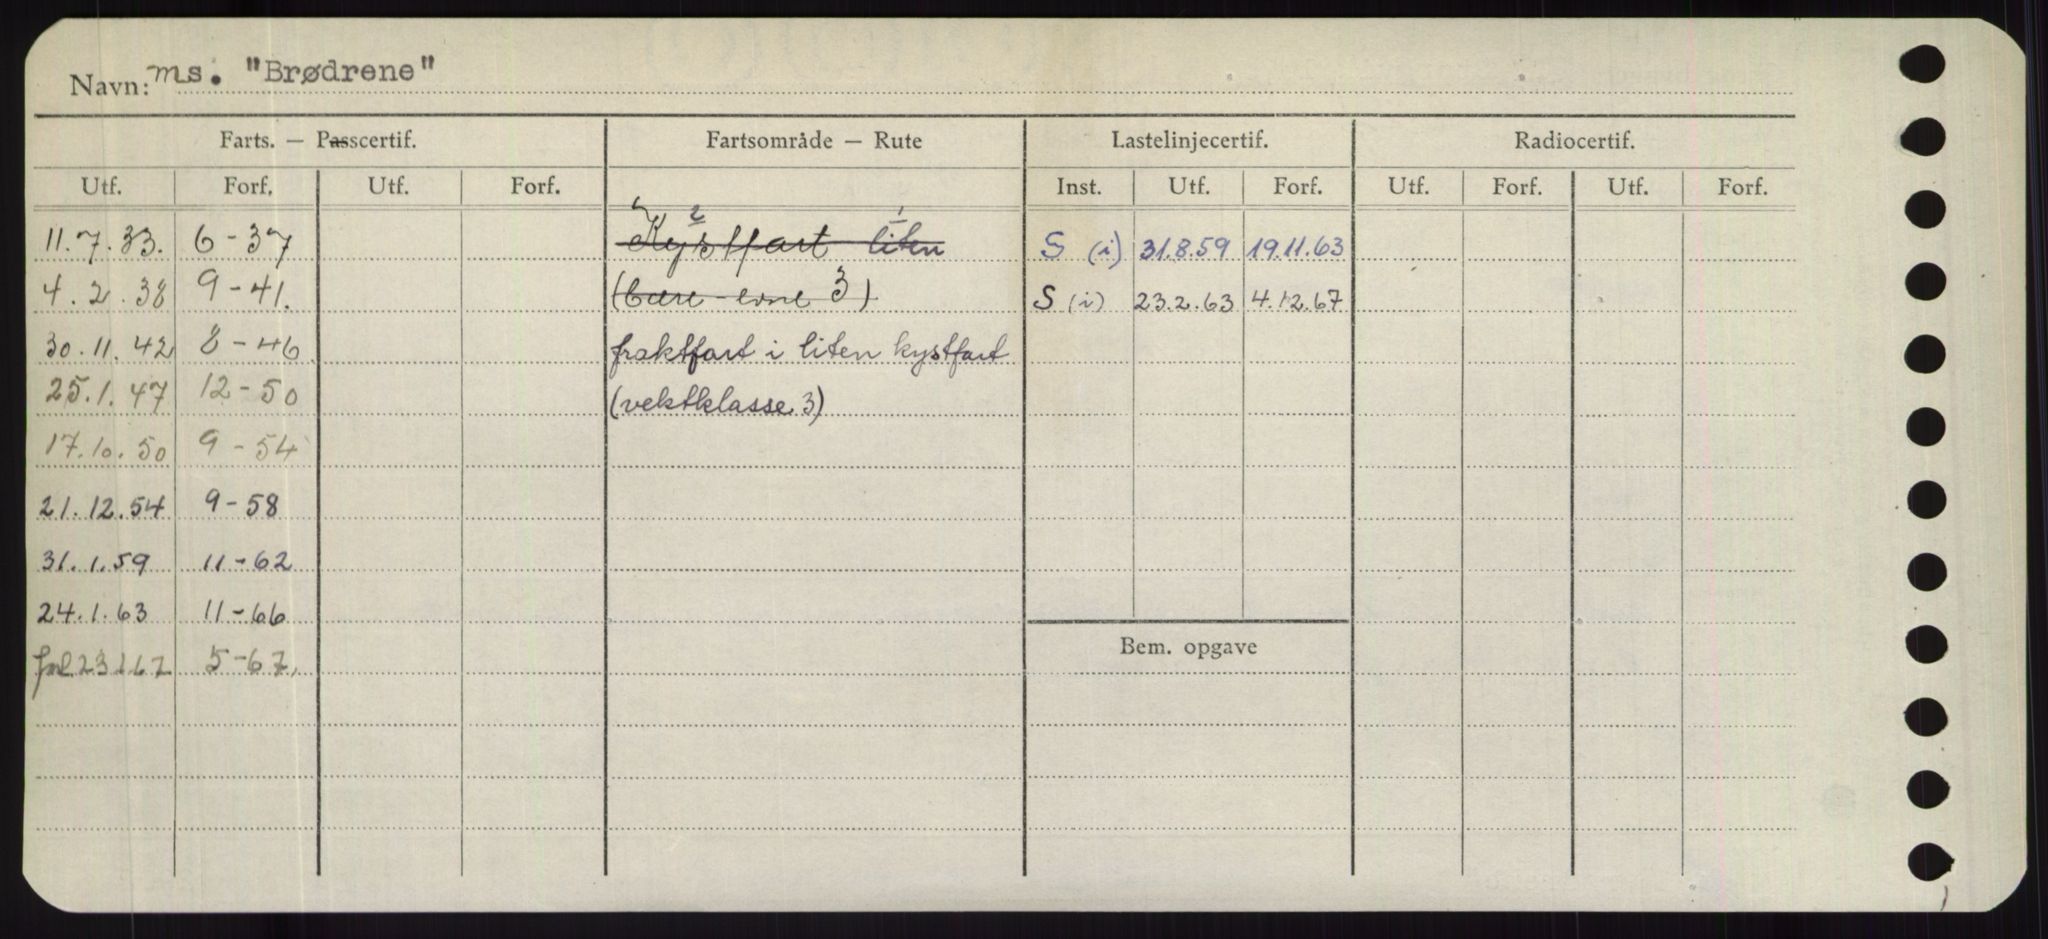 Navn: ms. "Brødrene"
Farts. — Passcertif. Fartsområde — Rute Lastelinjecertif. Radiocertif.
Utf. Forf. Utf. Forf. Inst. Utf. Forf. Utf. Forf. Utf. Forf.
11.7.33. 6-37 Kystfart 2 liten 1 S (i) 31.8.59 19.11.63
4.2.38 9-41. (bære-evne 3) S (i) 23.2.63 4.12.67
30.11.42 8-46 fraktfart i liten kystfart
25.1.47 12-50 (vektklasse 3)
17.10.50 9-54
21.12.54 9-58
31.1.59 11-62
24.1.63 11-66
Bem. opgave
23.1.67 5-67.